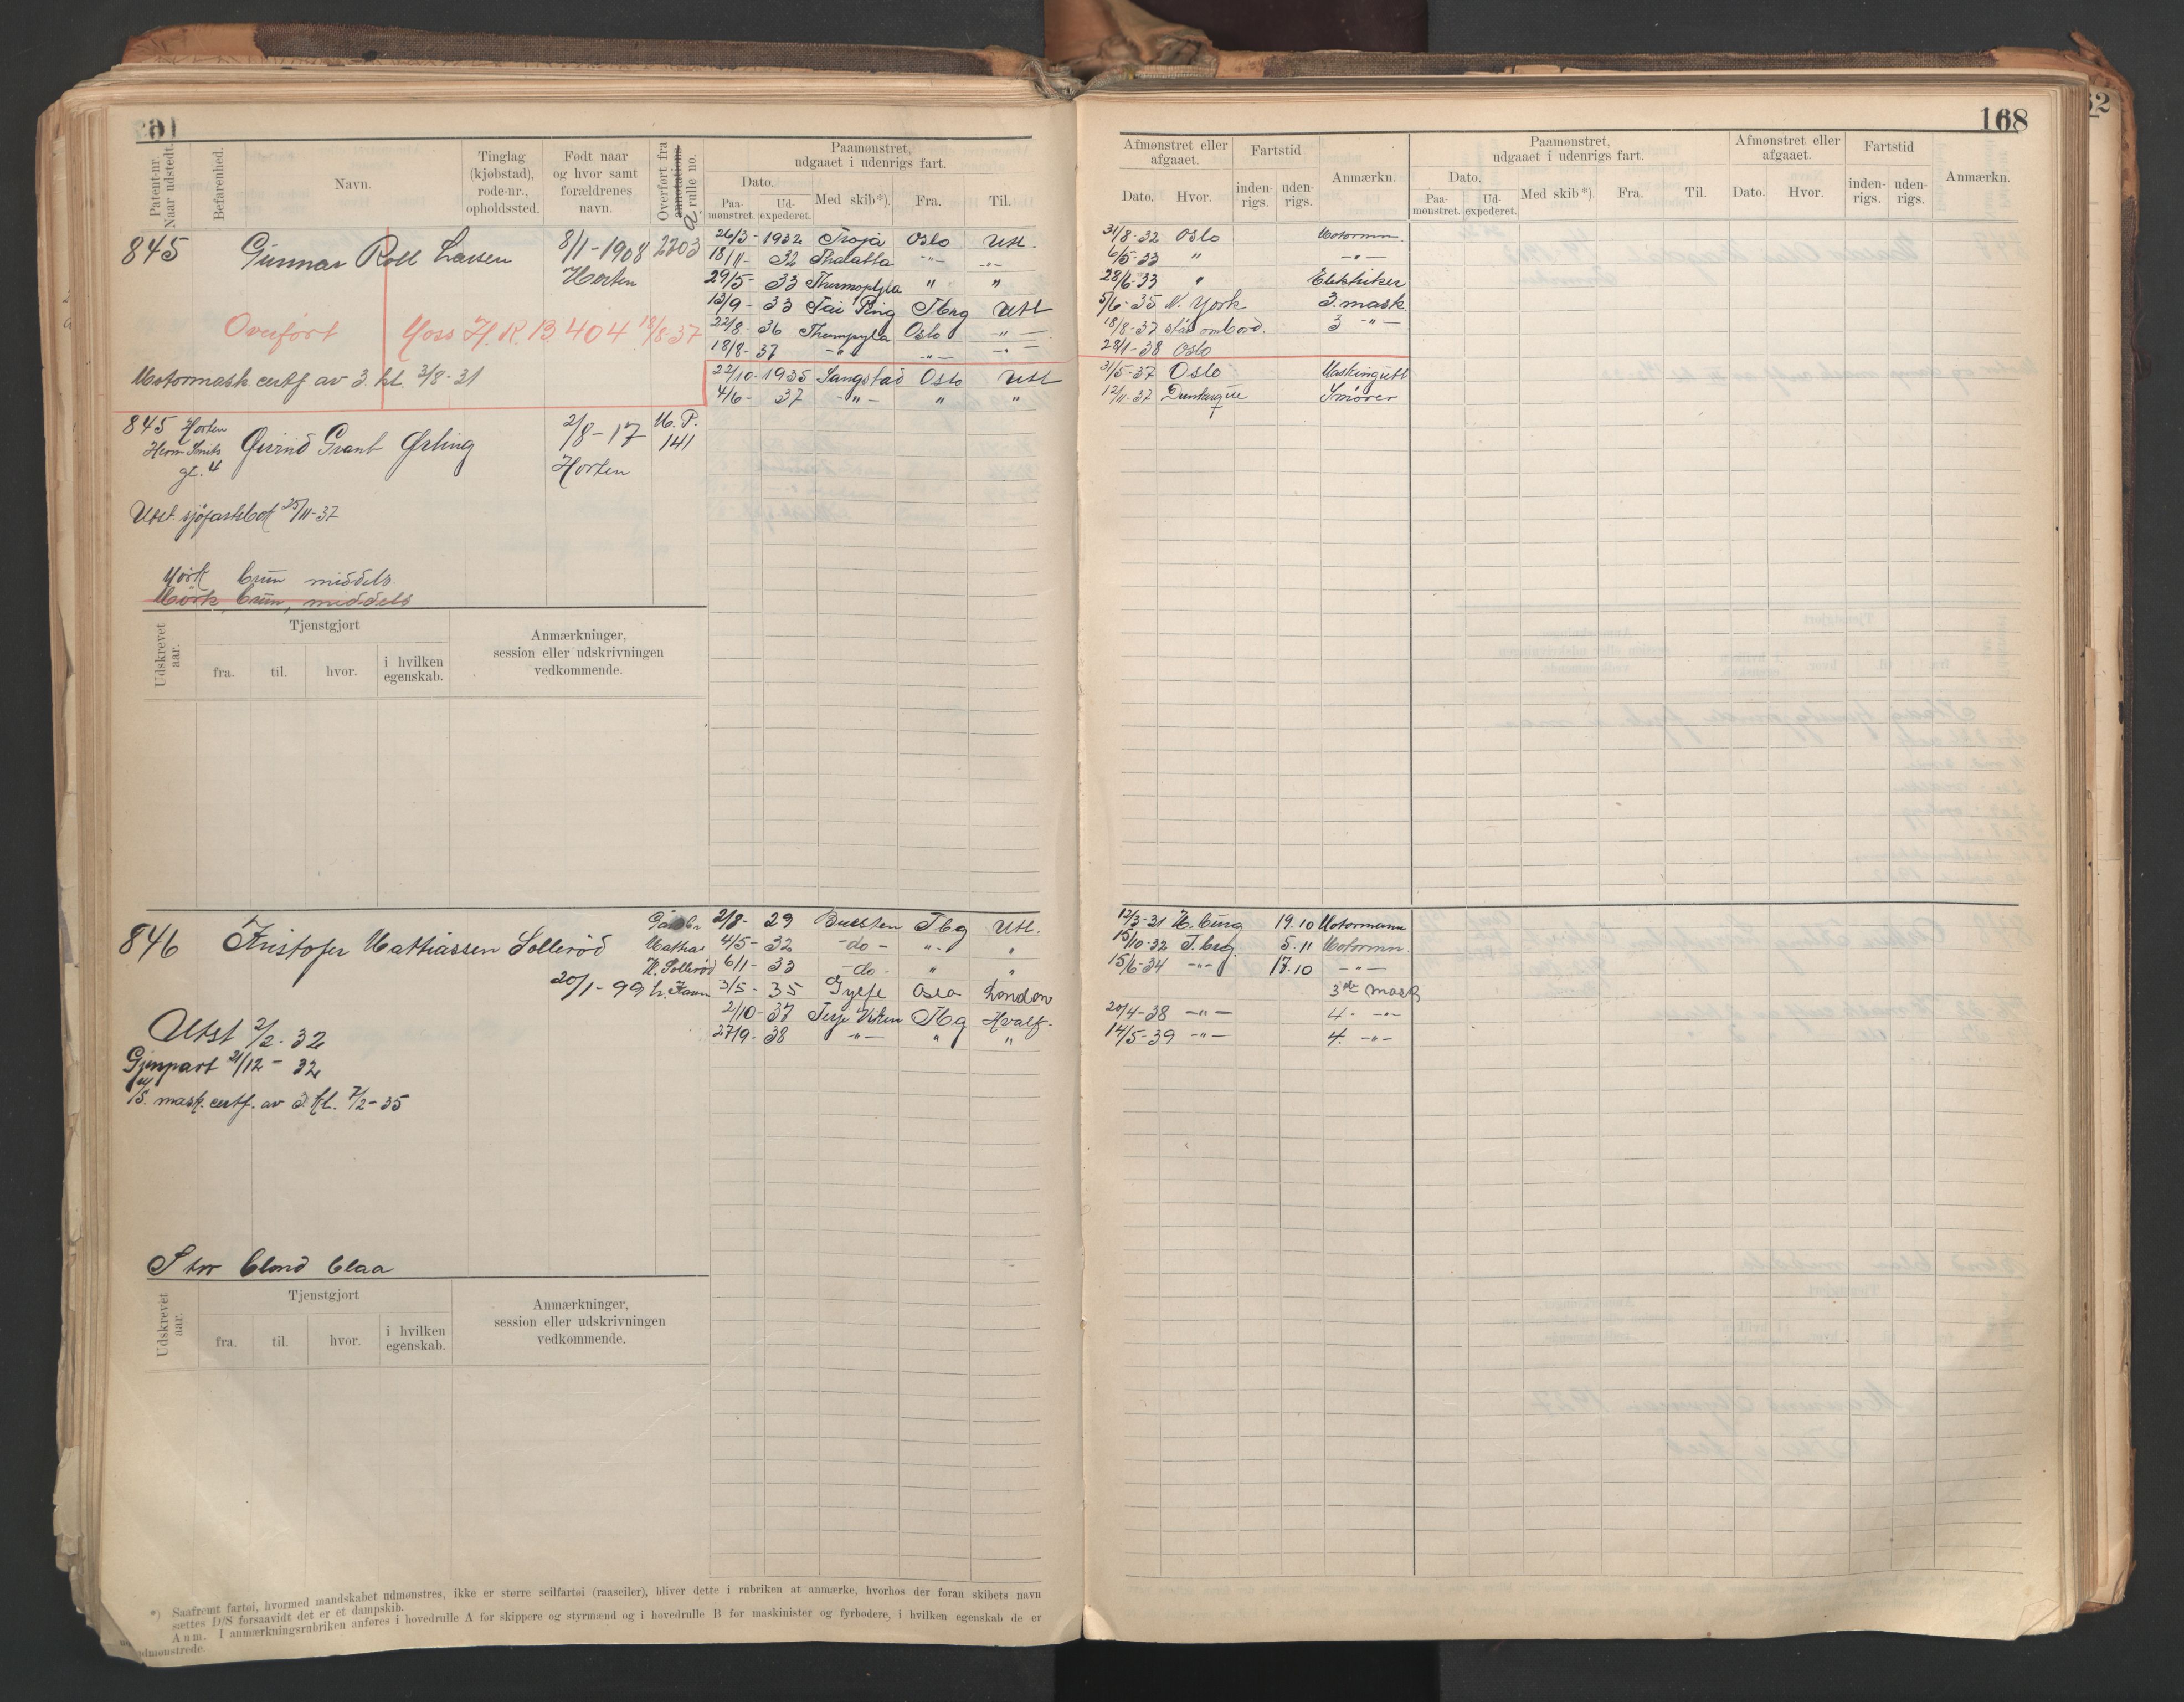 168
Patent-nr. Naar udstedt.
Befarenhed.
Navn.
Tinglag (kjøbstad), rode-nr., opholdssted.
Født naar og hvor samt forældrenes navn.
Overført fra annotations a rulle no.
Paamønstret, udgaaet i udenrigs fart.
Dato.
Paa-mønstret.
Ud-expederet.
Med skib*).
Fra.
Til.
Afmønstret eller afgaaet.
Dato.
Hvor.
Fartstid
inden-rigs.
uden-rigs.
Anmærkn.
Paamønstret, udgaaet i udenrigs fart.
Dato.
Paa-mønstret.
Ud-expederet.
Med skib*).
Fra.
Til.
Afmønstret eller afgaaet.
Dato.
Hvor.
Fartstid
inden-rigs.
uden-rigs.
Anmærkn.
845 Gunnar Roll Larsen 8/1-1908 2203
Horten
26/3-1932 Troja Oslo Utl. 31/8-32 Oslo Motormn.
18/11-32 Thalatta -"- -"- 6/5-33 " -"-
29/5-33 Thermopylæ " " 28/6-33 " Elektriker
13/9-33 Tai Ping Tbrg Utl 5/6-35 N. York 3. mask
22/8-36 Oslo -"- 18/8-37 står ombord. 3 -"-
18/8-37 -"- -"- -"- 28/1-38 Oslo
Overført Moss H.R.B. 404 18/8-37
Motormask certf av 3. kl. 3/8-31
845 Horten
Herm Smits
gt. 4
Øivind Grant Ørling 2/8-17 M.P.
141
Horten
22/10-1935 Sangstad Oslo Utl 31/5-37 Oslo Maskingutt
4/6-37 -"- " " 12/11-37 Dunkerque Smører
Utst. sjøfartsbok 25/11-37
Mörk brun middels.
Mörk, brun, middels
Udskrevet aar.
Tjenstgjort
fra.
til.
hvor.
i hvilken egenskab.
Anmærkninger, session eller udskrivningen vedkommende.
846 Kristofer Mattiassen Sollerød
Mathias
H. Sollerød
20/1-99
2/8-29 Tbg Utl. 12/3-31 H.burg 19.10 Motormann
4/5-32 -do- -"- " 15/10-32 T.brg. 5.11 Motormn.
6/1-33 -do- " " 15/6-34 -"- 17.10 -"-
3/5-35 Gylfe London 3die mask
2/10-37 Terje Viken Tbg Hvalf. 20/4-38 -"- 4. -"-
27/9-38 -"- " " 14/5-39 -"- 4. -"-
Utst 2/2-32
Gjenpart 21/12-32
mask. certf. av 3 kl. 7/2-35
Stor blond blaa
Udskrevet aar.
Tjenstgjort
fra.
til.
hvor.
i hvilken egenskab.
Anmærkninger, session eller udskrivningen vedkommende.
*) Saafremt fartøi, hvormed mandskabet udmønstres, ikke er større seilfartøi (raaseiler), bliver dette i rubriken at anmærke, hvorhos der foran skibets navn
sættes D/S forsaavidt det er et dampskib.
Anm. I anmærkningsrubriken anføres i hovedrulle A for skippere og styrmænd og i hovedrulle B for maskinister og fyrbødere, i hvilken egenskab de er
udmønstrede.